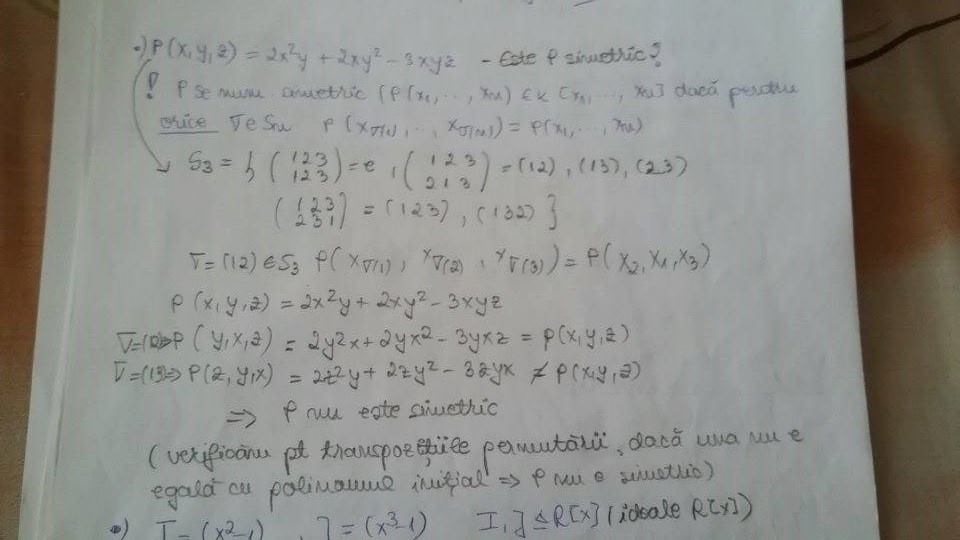 •) P(x,y,z) = 2x²y + 2xy² - 3xyz - Este P simetric?
! P se num. simetric (P(x₁,..,xₙ) ∈ K[x₁,...,xₙ] dacă pentru
orice σ ∈ Sₙ P(x_σ(1),..,x_σ(n)) = P(x₁,...,xₙ)
S₃ = { (1 2 3 / 1 2 3) = e, (1 2 3 / 2 1 3) = (12), (13), (23)
(1 2 3 / 2 3 1) = (123), (132) }
σ = (12) ∈ S₃ P(x_σ(1), x_σ(2), x_σ(3)) = P(x₂, x₁, x₃)
P(x,y,z) = 2x²y + 2xy² - 3xyz
σ=(12)⇒ P(y,x,z) = 2y²x + 2yx² - 3yxz = P(x,y,z)
σ=(13)⇒ P(z,y,x) = 2z²y + 2zy² - 3zyx ≠ P(x,y,z)
⇒ P nu este simetric
(verificăm pt transpozițiile permutării, dacă una nu e
egală cu polinomul inițial ⇒ P nu e simetric)
•) I = (x²-1), J = (x³-1) I,J ≤ R[x] (ideale R[x])